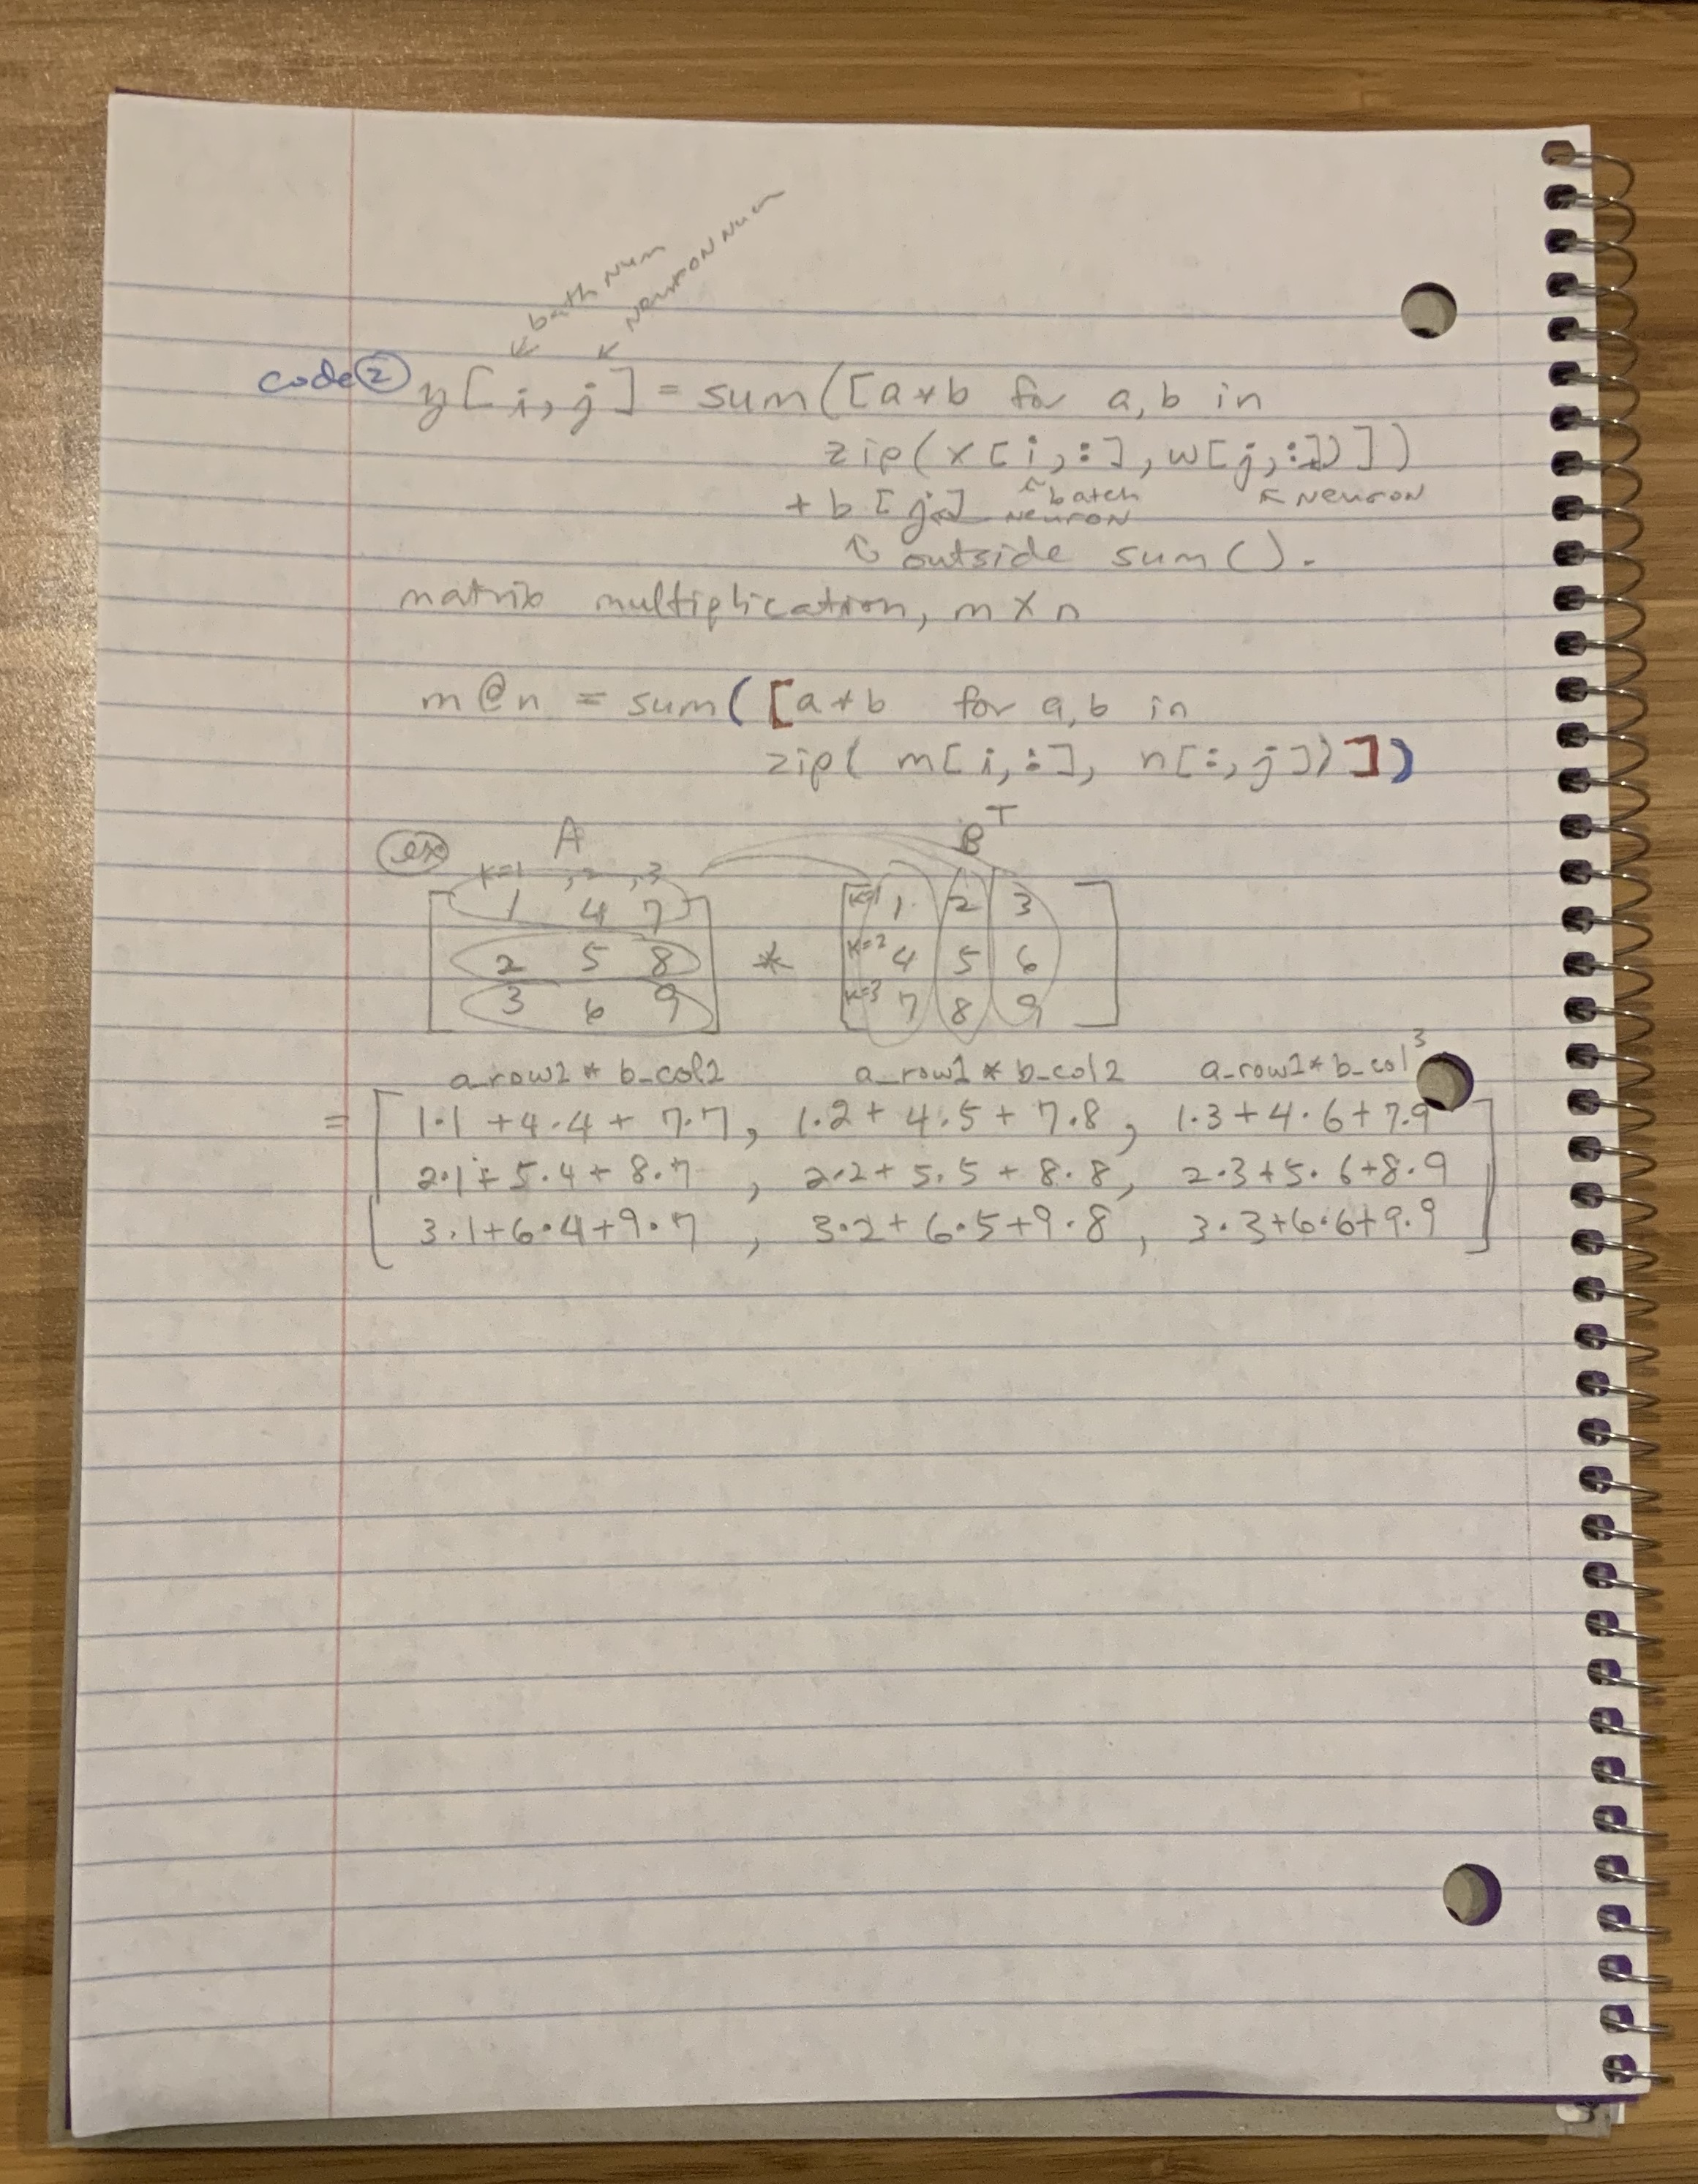 bath Num
Neuron Num
code ② y[i,j] = sum([a*b for a,b in
zip(x[i,:], w[j,:])])
+ b[j] ↑ batch ↑ Neuron
Neuron
↑ outside sum().
matrix multiplication, m x n
m@n = sum([a*b for a,b in
zip( m[i,:], n[:,j])])
ex A Bᵀ
k=1 ,2 ,3
1 4 7 k=1 1 2 3
2 5 8 * k=2 4 5 6
3 6 9 k=3 7 8 9
a_row1 * b_col1 a_row1 * b_col2 a_row1 * b_col3
= [ 1·1 + 4·4 + 7·7, 1·2 + 4·5 + 7·8, 1·3 + 4·6 + 7·9
2·1 + 5·4 + 8·7 , 2·2 + 5·5 + 8·8, 2·3 + 5·6 + 8·9
3·1 + 6·4 + 9·7 , 3·2 + 6·5 + 9·8, 3·3 + 6·6 + 9·9 ]